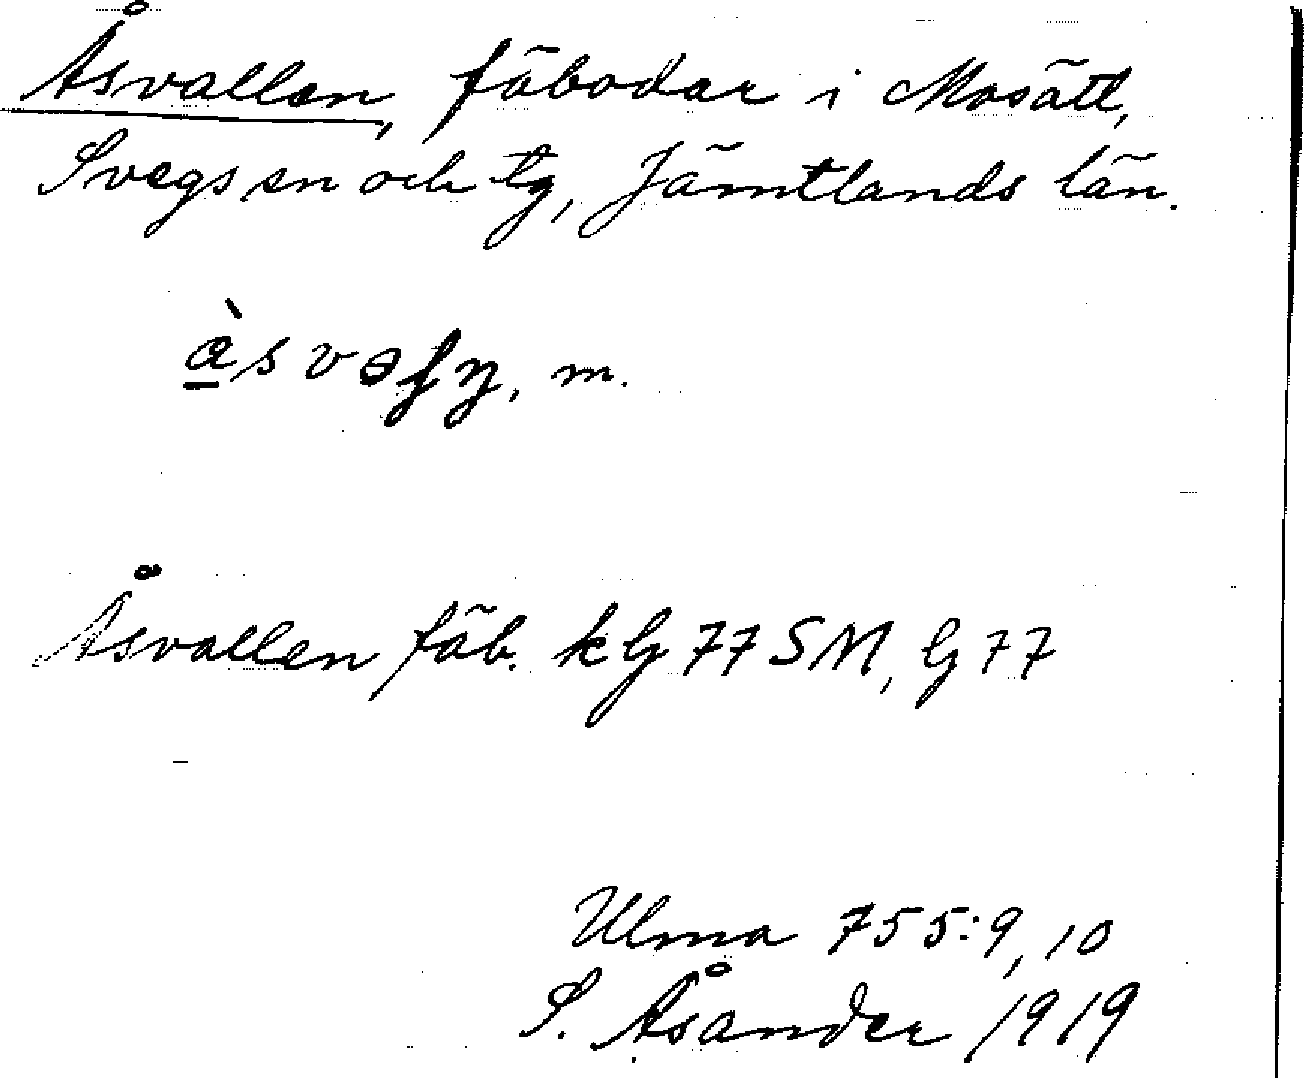 Åsvallen, fäbodar i Mosätt,
Svegs sn och tg, Jämtlands län.
m.
Åsvallen fäb. kG 77 SM, G 77
Ulma 755:9, 10
S. Åsander 1919